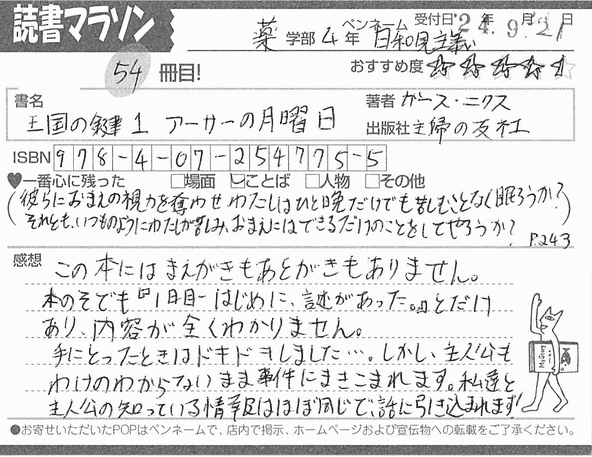 読書マラソン
薬 学部 4 年 ペンネーム 日和見主義 受付日 '24年 9月21日
54 冊目! おすすめ度 ☆☆☆☆☆
書名 王国の鍵1 アーサーの月曜日
著者 ガース・ニクス
出版社 主婦の友社
ISBN 978-4-07-254775-5
♥一番心に残った □場面 □ことば □人物 □その他
(彼らにおまえの視力を奪わせ わたしはひと晩だけでも苦しむことなく眠ろうか?
それとも、いつものようにわたしが苦しみ、おまえにはできるだけのことをしてやろうか?)
P.243
感想
この本にはまえがきもあとがきもありません。
本のそでも『1日目ーはじめに、謎があった。』とだけ
あり、内容が全くわかりません。
手にとったときはドキドキしました…。しかし、主人公も
わけのわからないまま事件にまきこまれます。私達と
主人公の知っている情報はほぼ同じで、話に引き込まれます!
●お寄せいただいたPOPはペンネームで、店内で掲示、ホームページおよび宣伝物への転載をご了承ください。